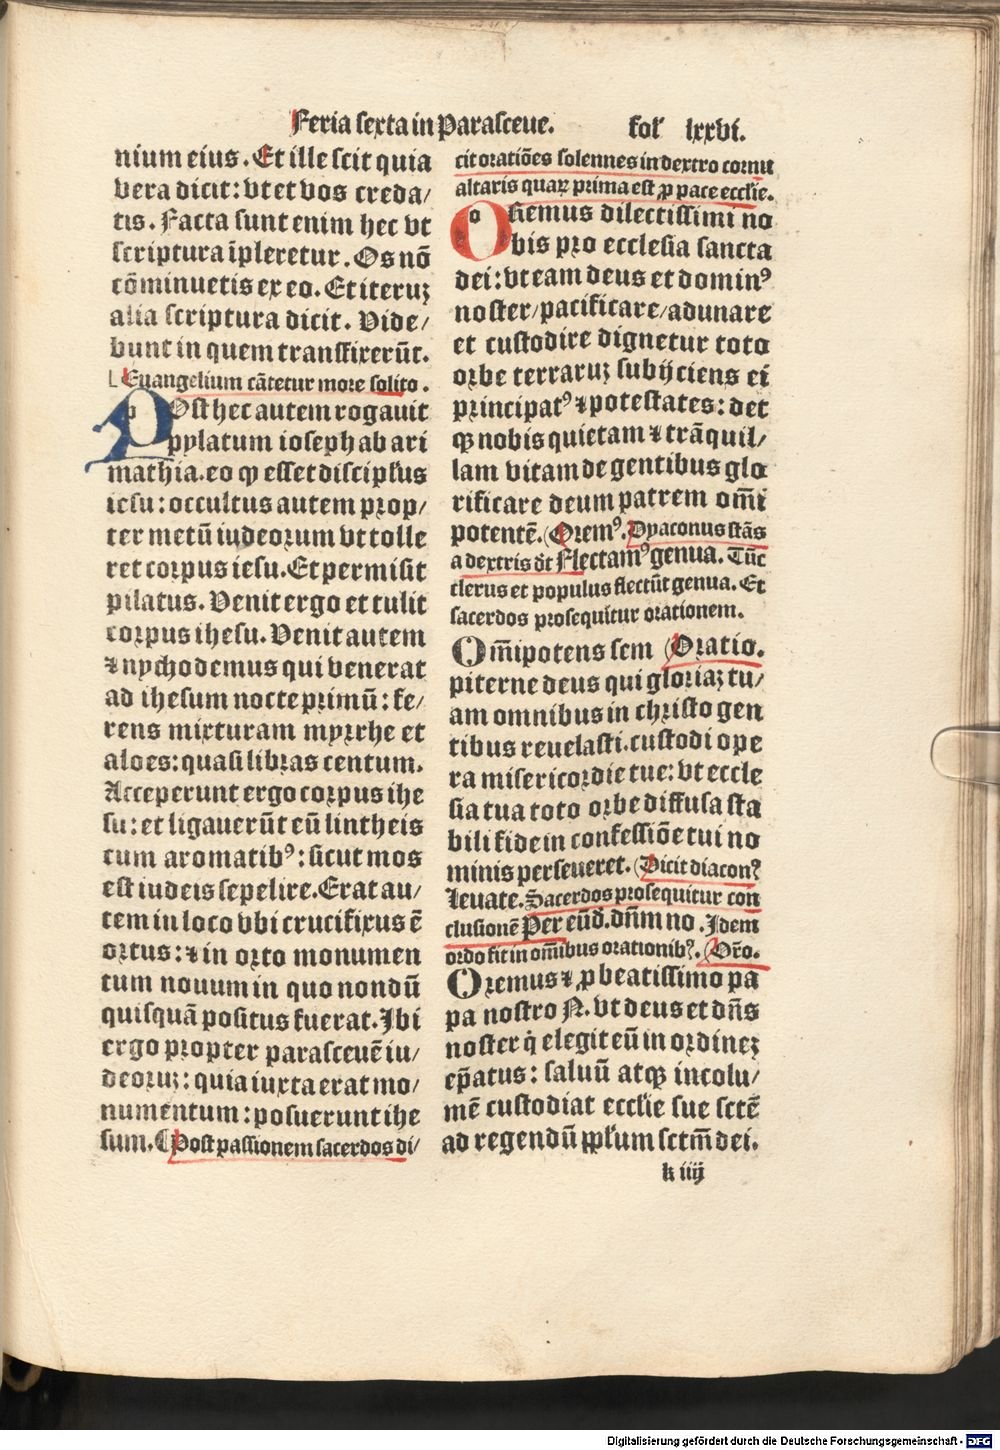 Feria sexta in Parasceue. fol' lxxvi.
nium eius. Et ille scit quia
vera dicit: vt et vos creda/
tis. Facta sunt enim hec vt
scriptura īpleretur. Os nō
cōminuetis ex eo. Et iteruꝫ
alia scriptura dicit. Vide/
bunt in quem transfixerūt.
Euangelium cātetur more solito.
POst hec autem rogauit
pylatum ioseph ab ari
mathia. eo ꝙ esset discipl'us
iesu: occultus autem prop/
ter metū iudeorum vt tolle
ret corpus iesu. Et permisit
pilatus. Venit ergo et tulit
corpus ihesu. Venit autem
⁊ nychodemus qui venerat
ad ihesum nocte primū: fe/
rens mixturam myrrhe et
aloes: quasi libras centum.
Acceperunt ergo corpus ihe
su: et ligauerūt eū lintheis
cum aromatibꝰ: sicut mos
est iudeis sepelire. Erat au/
tem in loco vbi crucifixus ē
ortus: ⁊ in orto monumen
tum nouum in quo nondū
quisquā positus fuerat. Ibi
ergo propter parasceuē iu/
deoruꝫ: quia iuxta erat mo/
numentum: posuerunt ihe
sum. ⸿Post passionem sacerdos di/
cit oratiōes solennes in dextro cornu
altaris quaꝝ prima est ꝓ pace eccl'ie.
ORemus dilectissimi no
bis pro ecclesia sancta
dei: vt eam deus et dominꝰ
noster/ pacificare/ adunare
et custodire dignetur toto
orbe terraruꝫ subijciens ei
principatꝰ ⁊ potestates: det
qꝫ nobis quietam ⁊ trāquil/
lam vitam degentibus glo
rificare deum patrem om̄i
potentē. (Oremꝰ. Dyaconus stās
a dextris dt̄ Flectamꝰ genua. Tūc
clerus et populus flectūt genua. Et
sacerdos prosequitur orationem.
Om̄ipotens sem (Oratio.
piterne deus qui gloriaꝫ tu/
am omnibus in christo gen
tibus reuelasti. custodi ope
ra misericordie tue: vt eccle
sia tua toto orbe diffusa sta
bili fide in confessiōe tui no
minis perseueret. (Dicit diaconꝰ
leuate. Sacerdos prosequitur con
clusionē Per eūd. dn̄m no. Idem
ordo fit in om̄ibus orationibꝰ. (Or̄o.
Oremus ⁊ ꝓ beatissimo pa
pa nostro N. vt deus et dn̄s
noster q̇ elegit eū in ordineꝫ
ep̄atus: saluū atqꝫ incolu/
mē custodiat eccl'ie sue sctē
ad regendū ppl'um sctm̄ dei.
k iiij
Digitalisierung gefördert durch die Deutsche Forschungsgemeinschaft - DFG